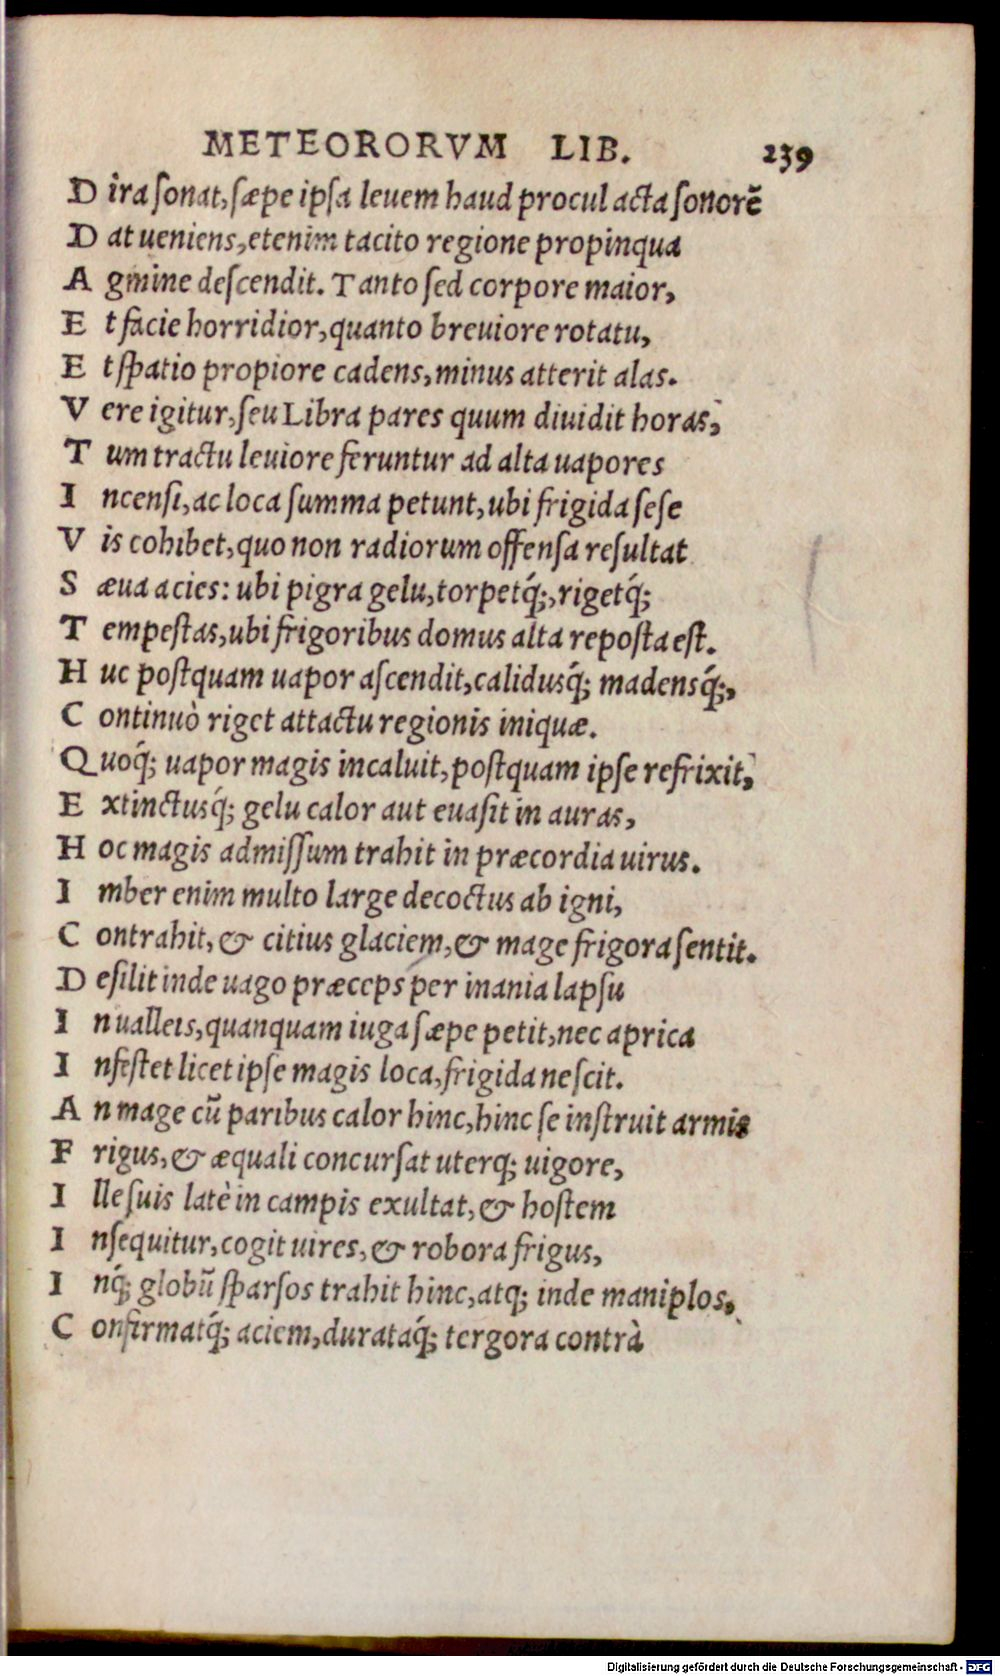 METEORORVM LIB. 239
D ira ſonat, ſæpe ipſa leuem haud procul acta ſonorē
D at ueniens, etenim tacito regione propinqua
A gmine deſcendit. Tanto ſed corpore maior,
E t facie horridior, quanto breuiore rotatu,
E t ſpatio propiore cadens, minus atterit alas.
V ere igitur, ſeu Libra pares quum diuidit horas,
T um tractu leuiore feruntur ad alta uapores
I ncenſi, ac loca ſumma petunt, ubi frigida ſeſe
V is cohibet, quo non radiorum offenſa reſultat
S æua acies: ubi pigra gelu, torpetq́;, rigetq́;
T empeſtas, ubi frigoribus domus alta repoſta eſt.
H uc poſtquam uapor aſcendit, calidusq́; madensq́;,
C ontinuò riget attactu regionis iniquæ.
Q uoq́; uapor magis incaluit, poſtquam ipſe refrixit,
E xtinctusq́; gelu calor aut euaſit in auras,
H oc magis admiſſum trahit in præcordia uirus.
I mber enim multo large decoctus ab igni,
C ontrahit, & citius glaciem, & mage frigora ſentit.
D eſilit inde uago præceps per inania lapſu
I n ualleis, quanquam iuga ſæpe petit, nec aprica
I nfeſtet licet ipſe magis loca, frigida neſcit.
A n mage cū paribus calor hinc, hinc ſe inſtruit armis
F rigus, & æquali concurſat uterq; uigore,
I lle ſuis latè in campis exultat, & hoſtem
I nſequitur, cogit uires, & robora frigus,
I nq́; globū ſparſos trahit hinc, atq; inde maniplos,
C onfirmatq́; aciem, durataq́; tergora contrà
Digitalisierung gefördert durch die Deutsche Forschungsgemeinschaft - DFG